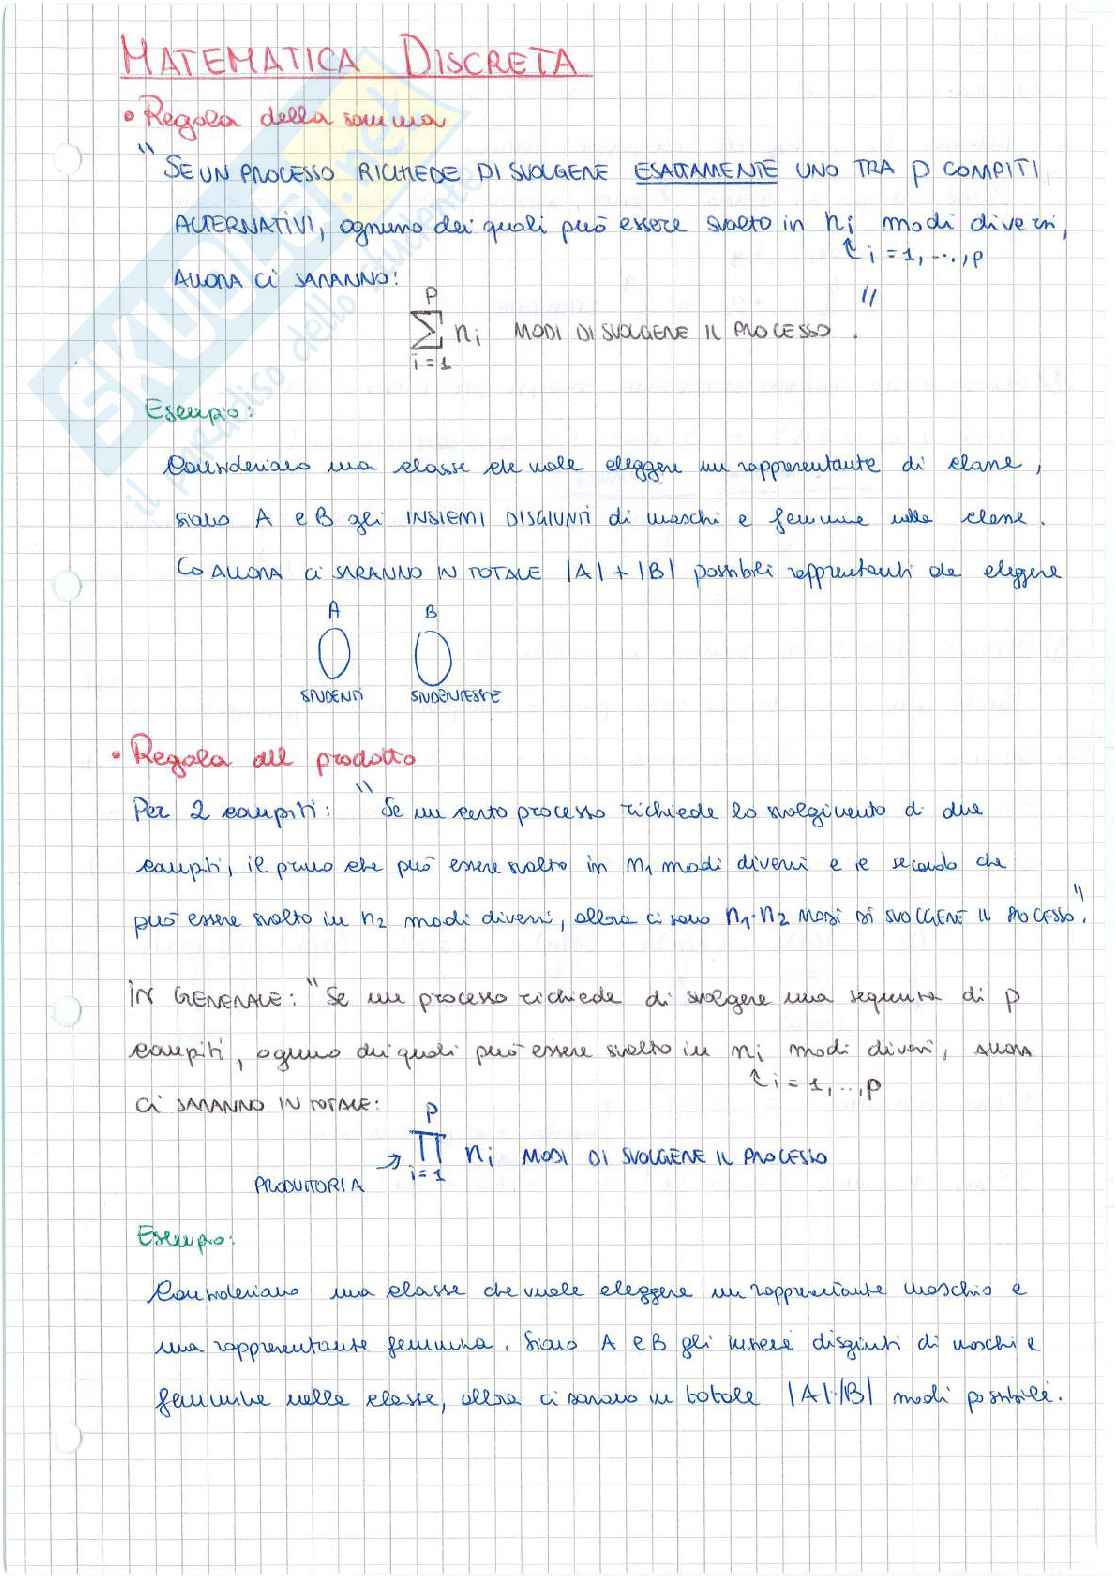 MATEMATICA DISCRETA
• Regola della somma
"SE UN PROCESSO RICHIEDE DI SVOLGERE ESATTAMENTE UNO TRA p COMPITI
ALTERNATIVI, ognuno dei quali può essere svolto in ni modi diversi,
i = 1, ..., p
ALLORA CI SARANNO:
p
∑ ni MODI DI SVOLGERE IL PROCESSO."
i = 1
Esempio:
Consideriamo una classe che vuole eleggere un rappresentante di classe,
siano A e B gli INSIEMI DISGIUNTI di maschi e femmine nella classe.
↳ ALLORA ci SARANNO IN TOTALE |A| + |B| possibili rappresentanti da eleggere
A B
STUDENTI STUDENTESSE
• Regola del prodotto
Per 2 compiti: "Se un certo processo richiede lo svolgimento di due
compiti, il primo che può essere svolto in n1 modi diversi e il secondo che
può essere svolto in n2 modi diversi, allora ci sono n1·n2 MODI DI SVOLGERE IL PROCESSO".
IN GENERALE: "Se un processo richiede di svolgere una sequenza di p
compiti, ognuno dei quali può essere svolto in ni modi diversi, ALLORA
i = 1, .., p
CI SARANNO IN TOTALE:
p
∏ ni MODI DI SVOLGERE IL PROCESSO
i = 1
PRODUTTORIA
Esempio:
Consideriamo una classe che vuole eleggere un rappresentante maschio e
una rappresentante femmina. Siano A e B gli insiemi disgiunti di maschi e
femmine nella classe, allora ci saranno in totale |A|·|B| modi possibili.
SKUOLA.net
il paradiso dello studente